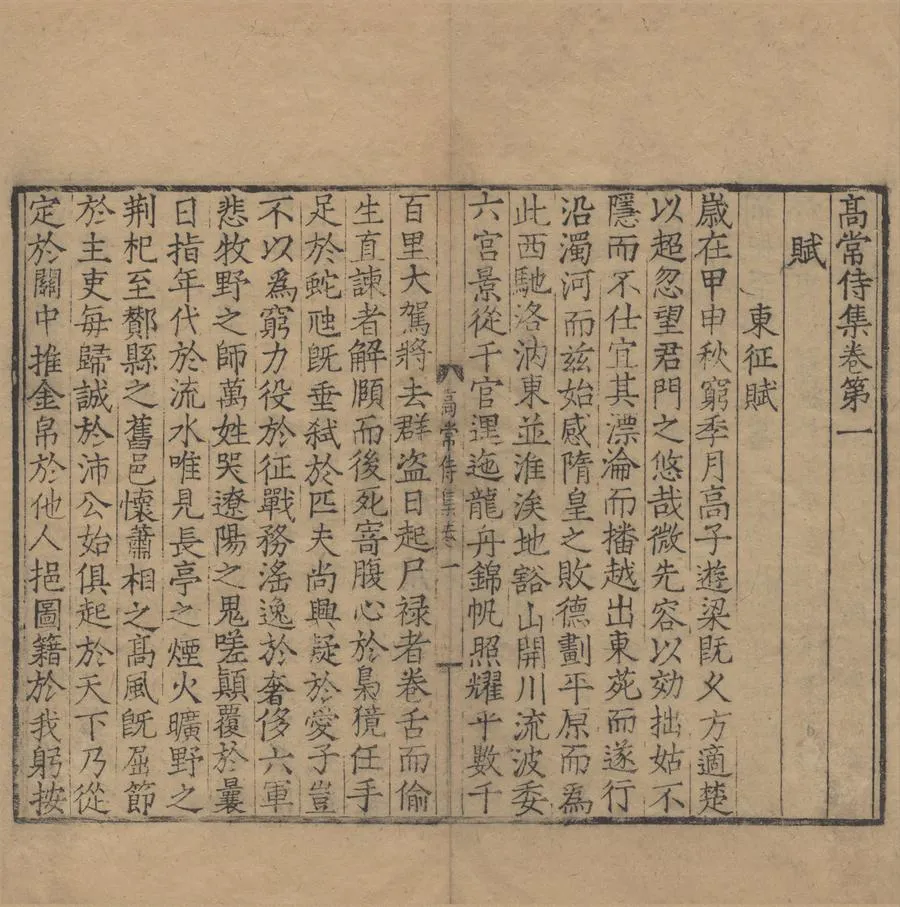 高常侍集卷第一
賦
東征賦
歲在甲申秋窮季月高子遊梁既久方適楚
以超忽望君門之悠哉微先容以効拙姑不
隱而不仕宜其漂淪而播越出東苑而遂行
沿濁河而兹始感隋皇之敗德劃平原而為
此西馳洛汭東並淮涘地豁山開川流波委
六宮景從千官邐迤龍舟錦帆照耀乎數千
高常侍集卷一
一
百里大駕將去群盗日起尸禄者卷舌而偷
生直諫者解頤而後死寄腹心於梟獍任手
足於蛇虺既垂弑於匹夫尚興疑於愛子豈
不以爲窮力役於征戰務滛逸於奢侈六軍
悲牧野之師萬姓哭遼陽之鬼嗟顛覆於曩
日指年代於流水唯見長亭之煙火曠野之
荆杞至酇縣之舊邑懷蕭相之髙風既屈節
於主吏毎歸誠於沛公始俱起於天下乃從
定於關中推金帛於他人挹圖籍於我躬按